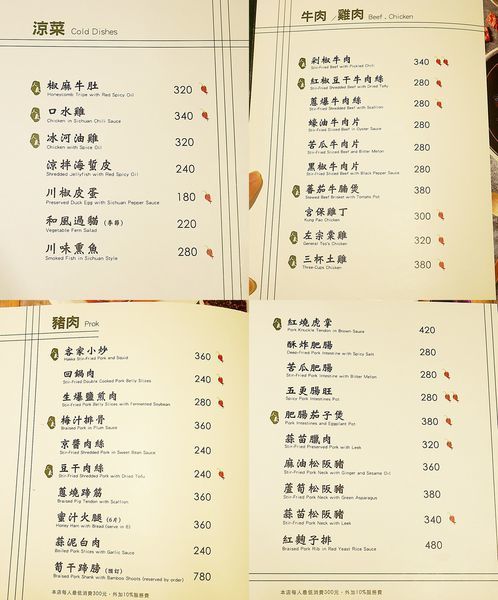 涼菜 Cold Dishes
椒麻牛肚 320
Honeycomb Tripe with Red Spicy Oil
口水雞 340
Chicken in Sichuan Chili Sauce
冰河油雞 320
Chicken with Spice Oil
涼拌海蜇皮 240
Shredded Jellyfish with Red Spicy Oil
川椒皮蛋 180
Preserved Duck Egg with Sichuan Pepper Sauce
和風過貓 (季節) 220
Vegetable Fern Salad
川味熏魚 280
Smoked Fish in Sichuan Style
牛肉／雞肉 Beef . Chicken
剁椒牛肉 340
Stir-Fried Beef with Pickled Chili
紅椒豆干牛肉絲 280
Stir-Fried Shredded Beef with Dried Tofu
蔥爆牛肉絲 280
Stir-Fried Shredded Beef with Scallion
蠔油牛肉片 280
Stir-Fried Sliced Beef in Oyster Sauce
苦瓜牛肉片 280
Stir-Fried Sliced Beef and Bitter Melon
黑椒牛肉片 280
Stir-Fried Sliced Beef with Black Pepper Sauce
蕃茄牛腩煲 380
Stewed Beef Brisket with Tomato Pot
宮保雞丁 300
Kung Pao Chicken
左宗棠雞 320
General Tso's Chicken
三杯土雞 380
Three-Cups Chicken
豬肉 Prok
客家小炒 360
Hakka Stir-Fried Pork and Squid
回鍋肉 240
Stir-Fried Double Cooked Pork Belly Slices
生爆鹽煎肉 280
Stir-Fried Pork Belly Slices with Fermented Soybean
梅汁排骨 360
Braised Pork in Plum Sauce
京醬肉絲 240
Stir-Fried Shredded Pork in Sweet Bean Sauce
豆干肉絲 240
Stir-Fried Shredded Pork with Dried Tofu
蔥燒蹄筋 360
Braised Pig Tendon with Scallion
蜜汁火腿 (6片) 360
Honey Ham with Bread (serve in 6)
蒜泥白肉 240
Boiled Pork Slices with Garlic Sauce
筍干蹄膀 (預訂) 780
Braised Pork Shank with Bamboo Shoots (reserved by order)
本店每人最低消費300元．外加10%服務費
紅燒虎掌 420
Pork Knuckle Tendon in Brown Sauce
酥炸肥腸 280
Deep-Fried Pork Intestine with Spicy Salt
苦瓜肥腸 280
Stir-Fried Pork Intestine with Bitter Melon
五更腸旺 280
Spicy Pork Intestines Pot
肥腸茄子煲 380
Pork Intestines and Eggplant Pot
蒜苗臘肉 320
Stir-Fried Preserved Pork with Leek
麻油松阪豬 360
Stir-Fried Pork Neck with Ginger and Sesame Oil
蘆筍松阪豬 380
Stir-Fried Pork Neck with Green Asparagus
蒜苗松阪豬 340
Stir-Fried Pork Neck with Leek
紅麴子排 480
Braised Pork Rib in Red Yeast Rice Sauce
本店每人最低消費300元．外加10%服務費